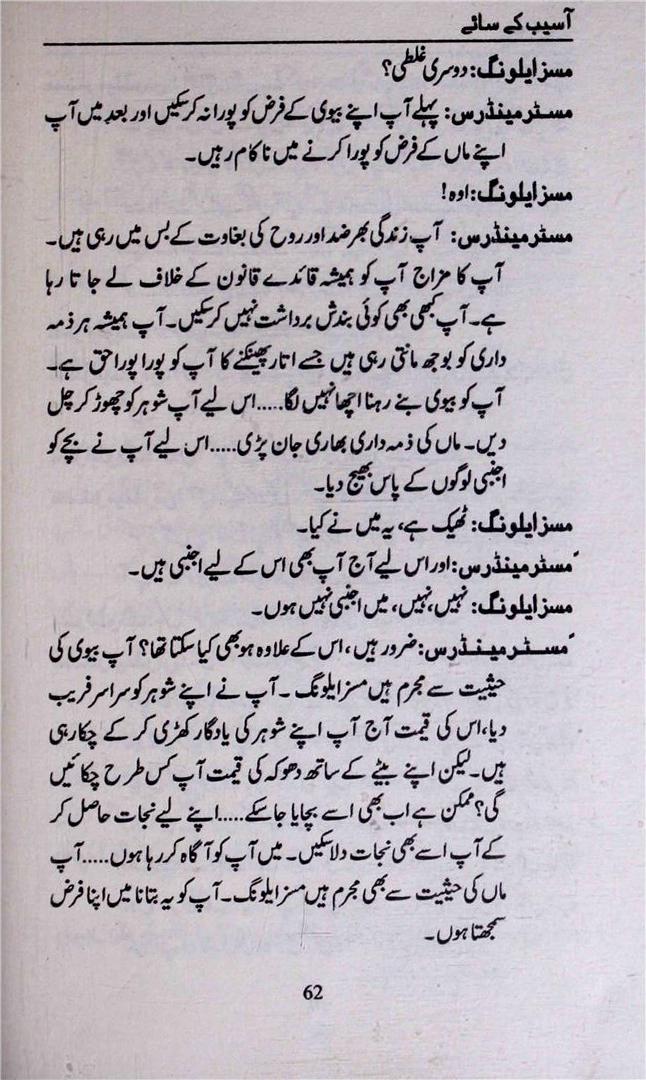 آسیب کے سائے
مسز ایلونگ: دوسری غلطی؟
مسٹر مینڈرس: پہلے آپ اپنے بیوی کے فرض کو پورا نہ کر سکیں اور بعد میں آپ
اپنے ماں کے فرض کو پورا کرنے میں ناکام رہیں۔
مسز ایلونگ: اوہ!
مسٹر مینڈرس: آپ زندگی بھر ضد اور روح کی بغاوت کے بس میں رہی ہیں۔
آپ کا مزاج آپ کو ہمیشہ قائدے قانون کے خلاف لے جاتا رہا
ہے۔ آپ کبھی بھی کوئی بندش برداشت نہیں کر سکیں۔ آپ ہمیشہ ہر ذمہ
داری کو بوجھ مانتی رہی ہیں جسے اتار پھینکنے کا آپ کو پورا پورا حق ہے۔
آپ کو بیوی بنے رہنا اچھا نہیں لگا.....اس لیے آپ شوہر کو چھوڑ کر چل
دیں۔ ماں کی ذمہ داری بھاری جان پڑی.....اس لیے آپ نے بچے کو
اجنبی لوگوں کے پاس بھیج دیا۔
مسز ایلونگ: ٹھیک ہے، یہ میں نے کیا۔
مسٹر مینڈرس: اور اس لیے آج آپ بھی اس کے لیے اجنبی ہیں۔
مسز ایلونگ: نہیں، نہیں، میں اجنبی نہیں ہوں۔
مسٹر مینڈرس: ضرور ہیں، اس کے علاوہ ہو بھی کیا سکتا تھا؟ آپ بیوی کی
حیثیت سے مجرم ہیں مسز ایلونگ۔ آپ نے اپنے شوہر کو سراسر فریب
دیا، اس کی قیمت آج آپ اپنے شوہر کی یادگار کھڑی کر کے چکا رہی
ہیں۔ لیکن اپنے بیٹے کے ساتھ دھوکہ کی قیمت آپ کس طرح چکائیں
گی؟ ممکن ہے اب بھی اسے بچایا جا سکے.....اپنے لیے نجات حاصل کر
کے آپ اسے بھی نجات دلا سکیں۔ میں آپ کو آگاہ کر رہا ہوں.....آپ
ماں کی حیثیت سے بھی مجرم ہیں مسز ایلونگ۔ آپ کو یہ بتانا میں اپنا فرض
سمجھتا ہوں۔
62